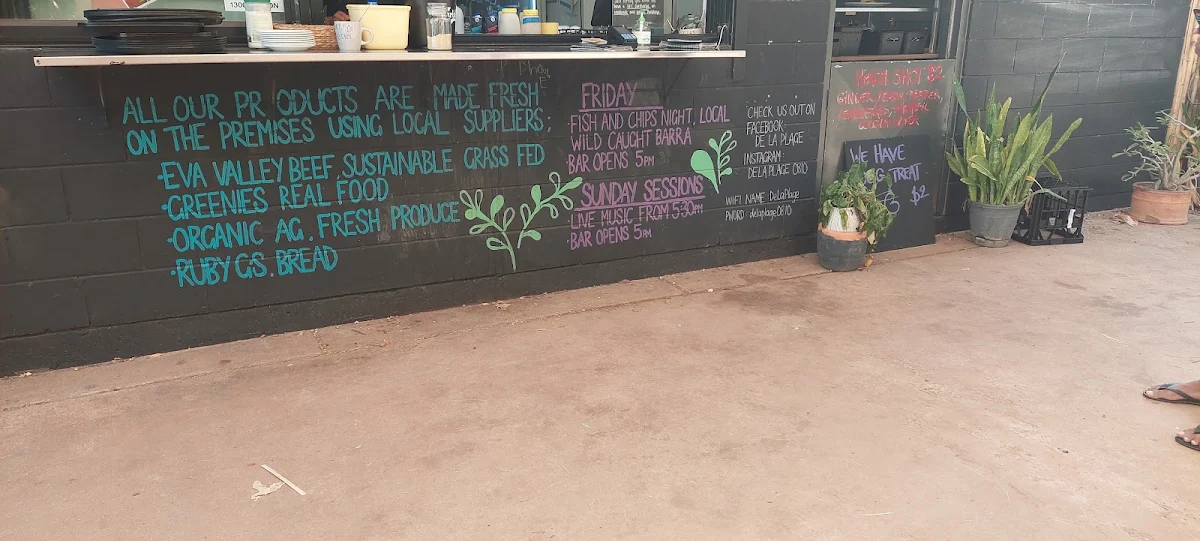 ALL OUR PRODUCTS ARE MADE FRESH
ON THE PREMISES USING LOCAL SUPPLIERS;
·EVA VALLEY BEEF, SUSTAINABLE GRASS FED
·GREENIES REAL FOOD
·ORGANIC AG. FRESH PRODUCE
·RUBY G'S. BREAD
FRIDAY
FISH AND CHIPS NIGHT, LOCAL
WILD CAUGHT BARRA
BAR OPENS 5PM
SUNDAY SESSIONS
LIVE MUSIC FROM 5:30PM
BAR OPENS 5PM
CHECK US OUT ON
FACEBOOK-
DE LA PLAGE
INSTAGRAM-
DELAPLAGE.0810
WIFI NAME: DeLaPlage
PWORD: delaplage0810
SHOT $2
GINGER, LEMON, PEPPER,
WE HAVE
TREAT
$2